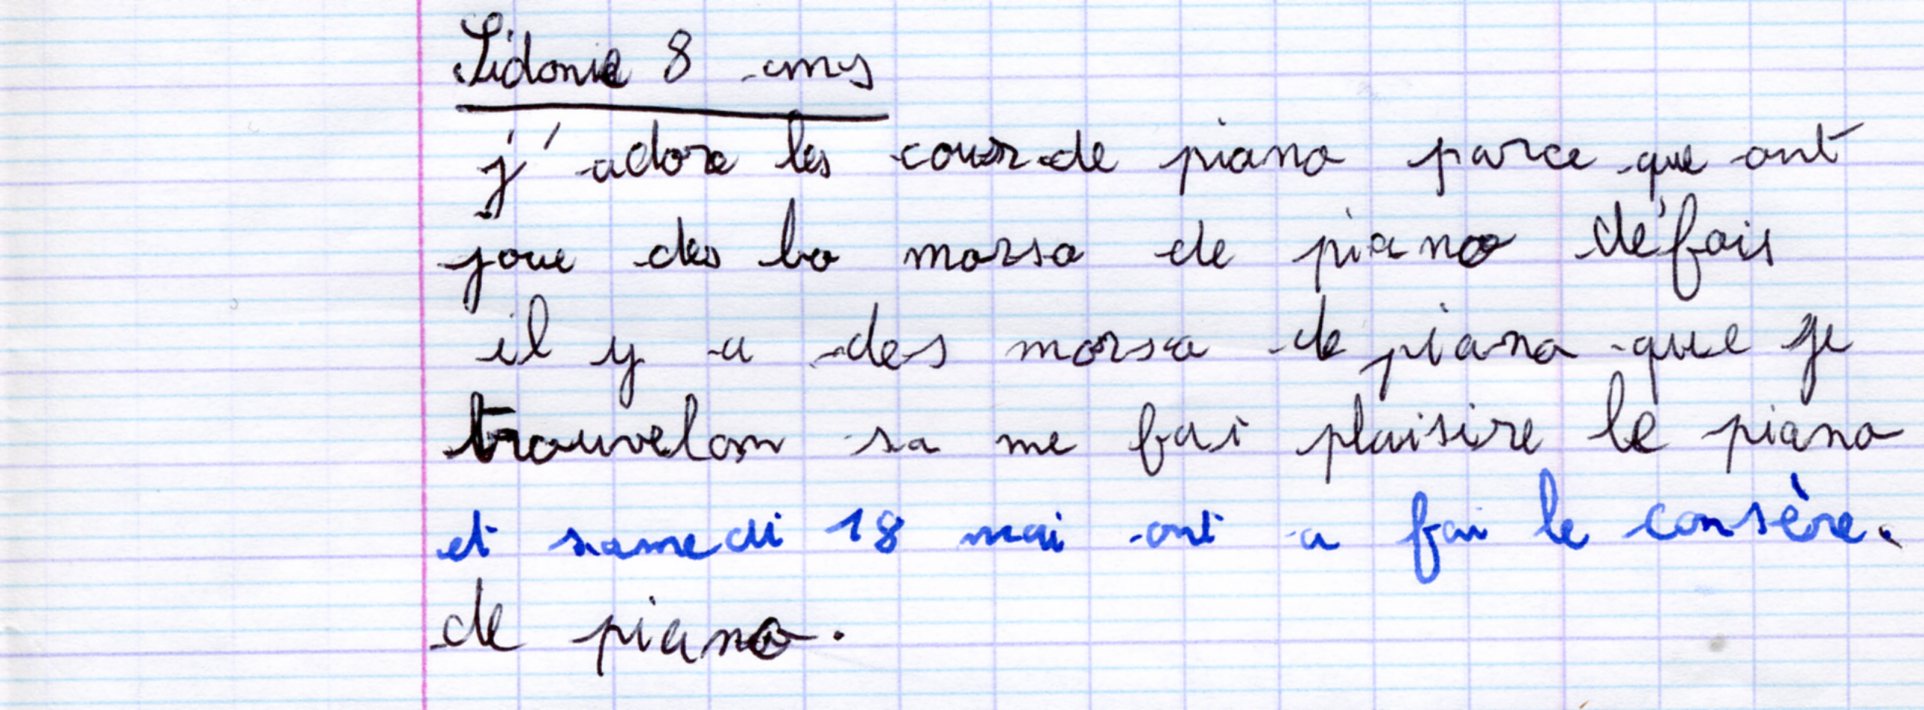 Sidonie 8 ans
j'adore les cour de piano parce que ont
joue des bo morso de piano dé fois
il y a des morso de piano que je
trouvelon sa me fai plaisire le piano
et samedi 18 mai ont a fai le consère.
de piano.